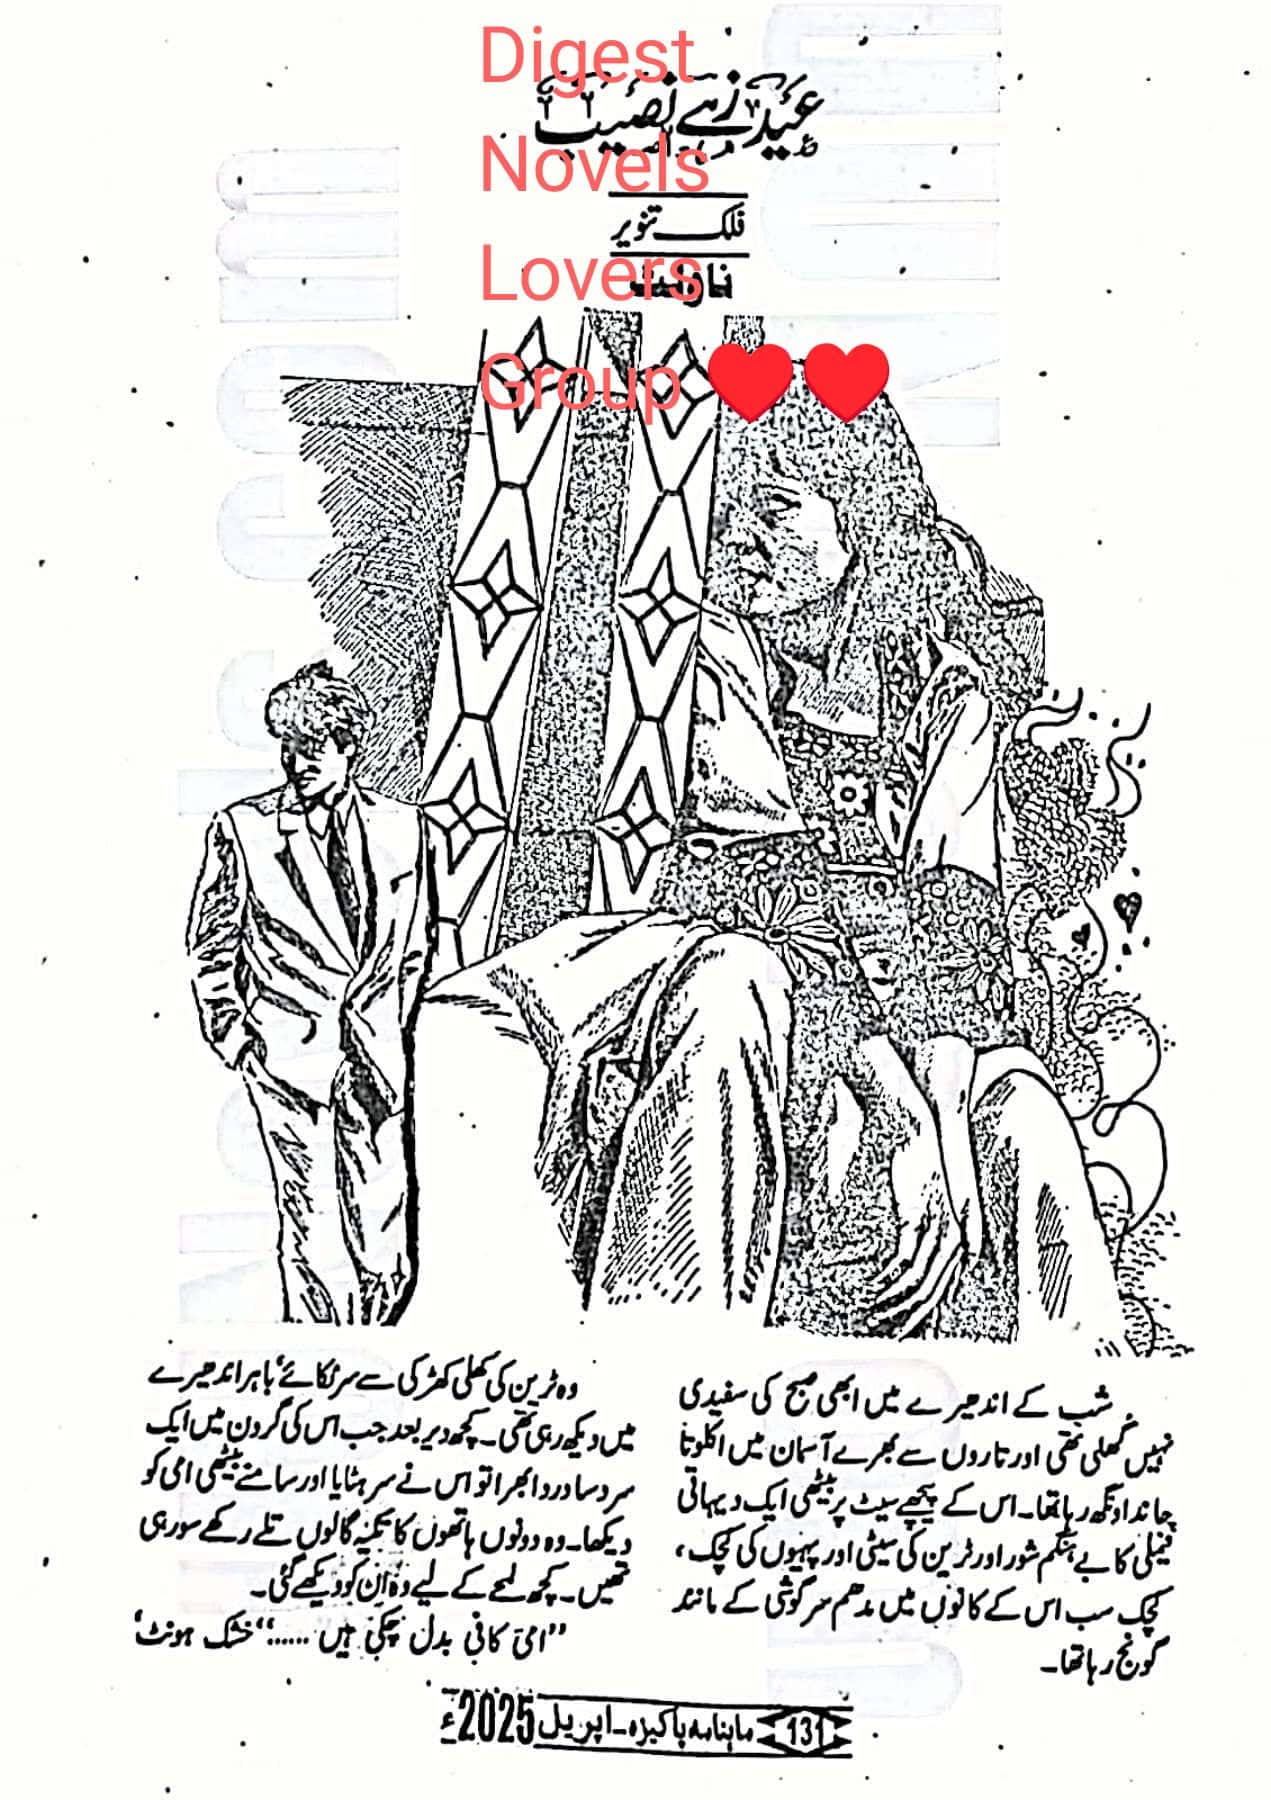 Digest
Novels
Lovers
Group ❤️❤️
عید زہے نصیب
فلک تنویر
ناولٹ
شب کے اندھیرے میں ابھی صبح کی سفیدی
نہیں گھلی تھی اور تاروں سے بھرے آسمان میں اکلوتا
چاند اونگھ رہا تھا۔ اس کے پیچھے سیٹ پر بیٹھی ایک دیہاتی
فیملی کا بے ہنگم شور اور ٹرین کی سیٹی اور پہیوں کی کچک،
کچک سب اس کے کانوں میں مدھم سرگوشی کے مانند
گونج رہا تھا۔
وہ ٹرین کی کھلی کھڑکی سے سر ٹکائے، باہر اندھیرے
میں دیکھ رہی تھی۔ کچھ دیر بعد جب اس کی گردن میں ایک
سرد سا درد ابھرا تو اس نے سر ہٹایا اور سامنے بیٹھی امی کو
دیکھا۔ وہ دونوں ہاتھوں کا تکیہ گالوں تلے رکھے سو رہی
تھیں۔ کچھ لمحے کے لیے وہ ان کو دیکھے گئی۔
”امی کافی بدل چکی ہیں ......“ خشک ہونٹ،
131 ماہنامہ پاکیزہ۔ اپریل 2025ء